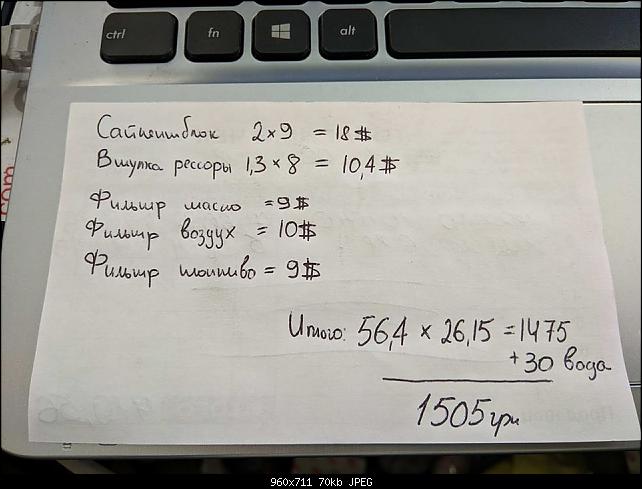 ctrl fn alt
Сайлентблок 2×9 = 18$
Втулка рессоры 1,3×8 = 10,4$
Фильтр масло =9$
Фильтр воздух = 10$
Фильтр топливо = 9$
Итого: 56,4 × 26,15 = 1475
+30 вода
1505грн
.com
960x711 70kb JPEG